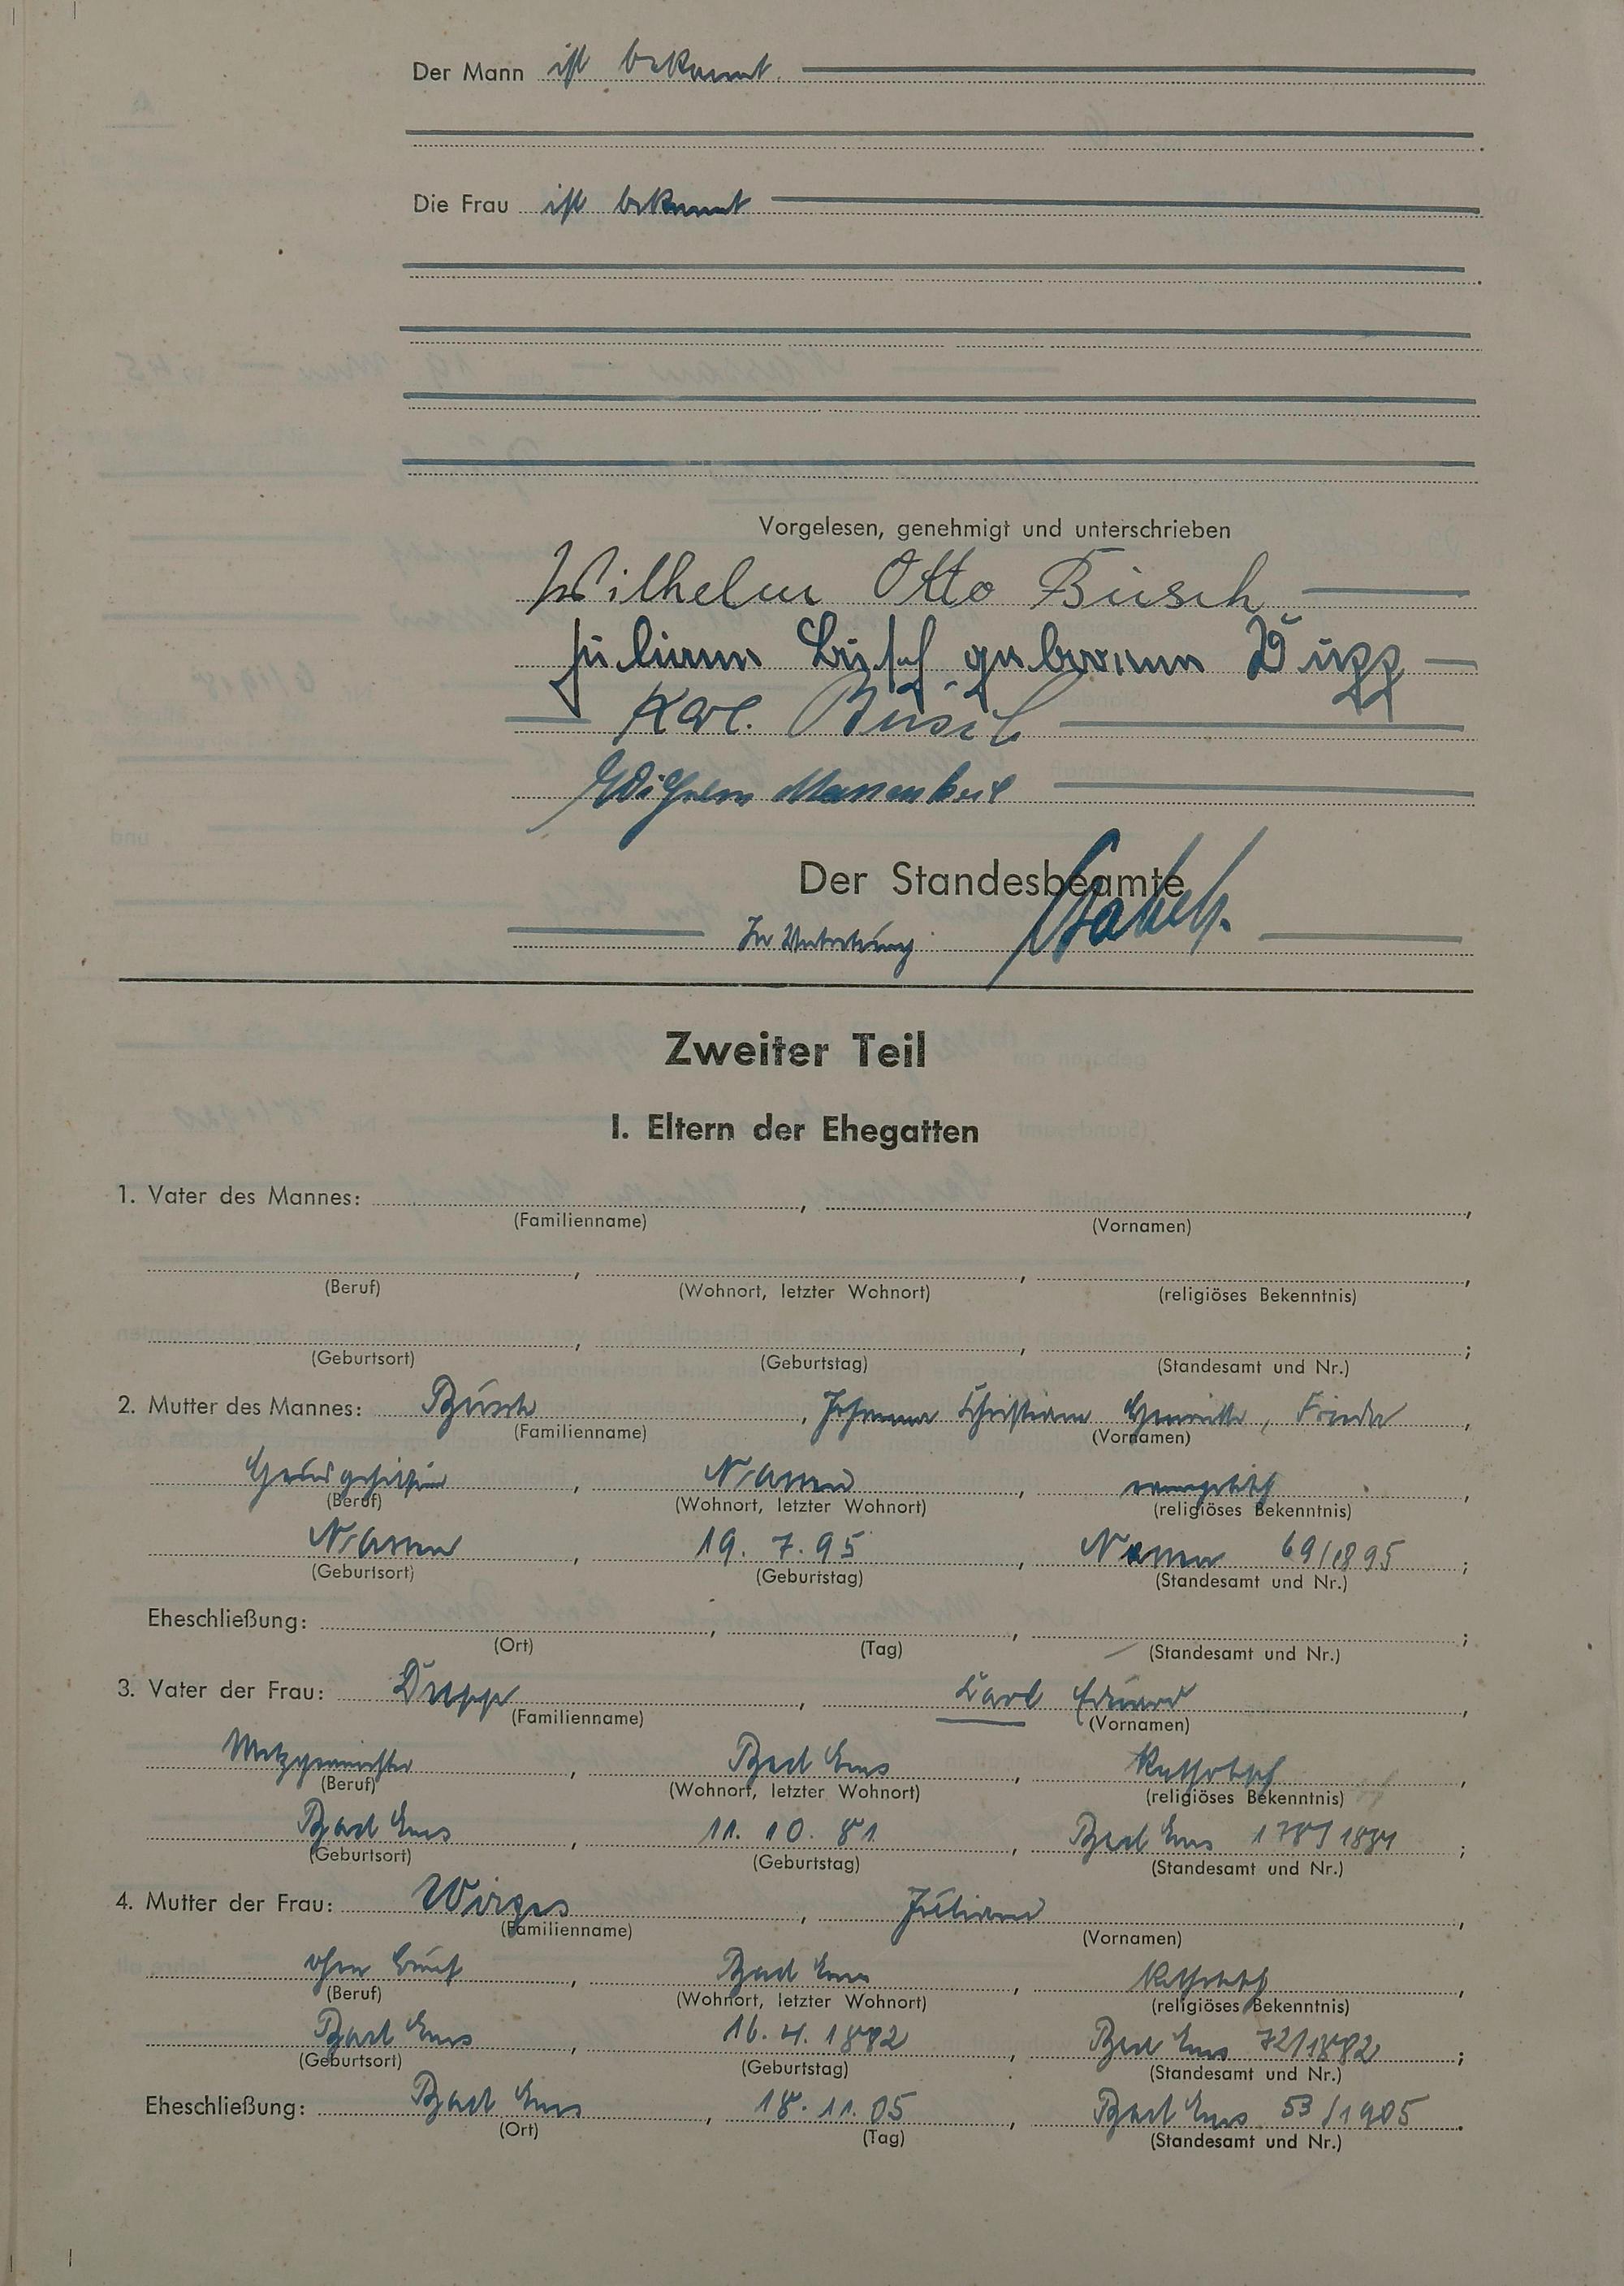 Der Mann ist bekannt.
Die Frau ist bekannt
Vorgelesen, genehmigt und unterschrieben
Wilhelm Otto Busch
Juliane Busch geborene Dupp
Karl Busch
Wilhelm
Der Standesbeamte
In Vertretung
Zweiter Teil
I. Eltern der Ehegatten
1. Vater des Mannes: , ,
(Familienname) (Vornamen)
, , ,
(Beruf) (Wohnort, letzter Wohnort) (religiöses Bekenntnis)
, , ;
(Geburtsort) (Geburtstag) (Standesamt und Nr.)
2. Mutter des Mannes: Busch , Johanna Christiane Henriette, Frieda ,
(Familienname) (Vornamen)
Hausgehilfin , Nassau , evangelisch ,
(Beruf) (Wohnort, letzter Wohnort) (religiöses Bekenntnis)
Nassau , 19. 7. 95 , Nassau 69/1895 ;
(Geburtsort) (Geburtstag) (Standesamt und Nr.)
Eheschließung: , , ;
(Ort) (Tag) (Standesamt und Nr.)
3. Vater der Frau: Dupp , Karl Eduard ,
(Familienname) (Vornamen)
Metzgermeister , Bad Ems , katholisch ,
(Beruf) (Wohnort, letzter Wohnort) (religiöses Bekenntnis)
Bad Ems , 11. 10. 81 , Bad Ems ;
(Geburtsort) (Geburtstag) (Standesamt und Nr.)
4. Mutter der Frau: Wirges , Juliane ,
(Familienname) (Vornamen)
ohne Beruf , Bad Ems , katholisch ,
(Beruf) (Wohnort, letzter Wohnort) (religiöses Bekenntnis)
Bad Ems , 16. 4. 1882 , Bad Ems 72/1882 ;
(Geburtsort) (Geburtstag) (Standesamt und Nr.)
Eheschließung: Bad Ems , 18. 11. 05 , Bad Ems 53/1905 .
(Ort) (Tag) (Standesamt und Nr.)